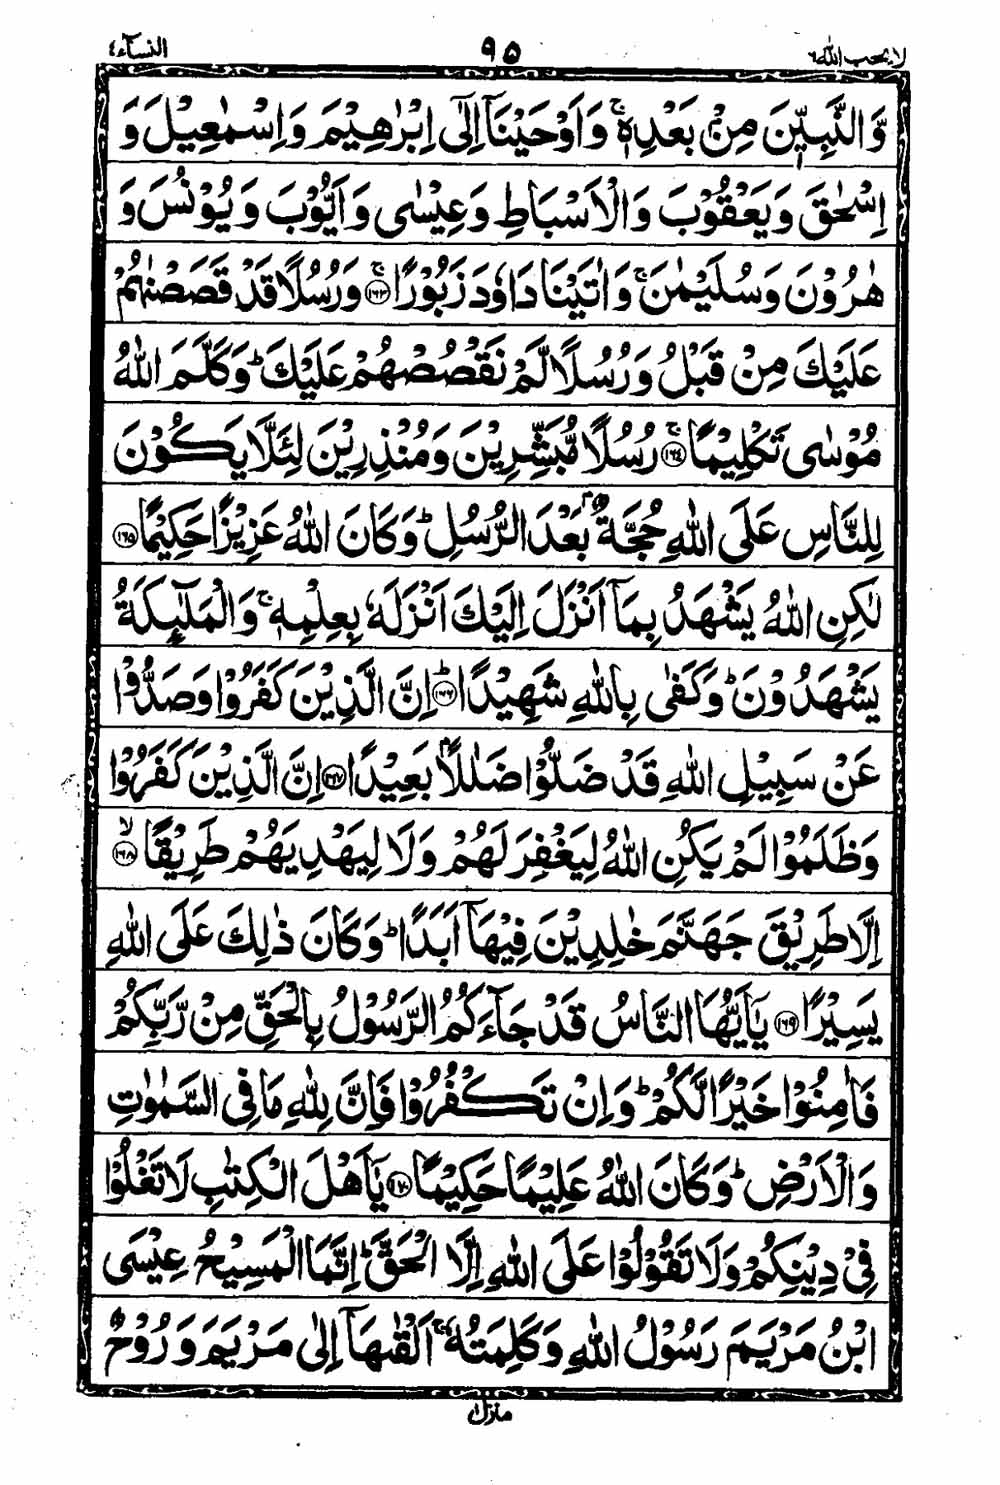 لا یحب اللّٰہ ٦ ۹۵ النسآء ٤
وَّالنَّبِيّٖنَ مِنْۢ بَعْدِهٖ ۚ وَاَوْحَيْنَاۤ اِلٰۤى اِبْرٰهِيْمَ وَاِسْمٰعِيْلَ وَ
اِسْحٰقَ وَيَعْقُوْبَ وَالْاَسْبَاطِ وَعِيْسٰى وَاَيُّوْبَ وَيُوْنُسَ وَ
هٰرُوْنَ وَسُلَيْمٰنَ ۚ وَاٰتَيْنَا دَاوٗدَ زَبُوْرًا ۚ﴿۱۶۳﴾ وَرُسُلًا قَدْ قَصَصْنٰهُمْ
عَلَيْكَ مِنْ قَبْلُ وَرُسُلًا لَّمْ نَقْصُصْهُمْ عَلَيْكَ ؕ وَكَلَّمَ اللّٰهُ
مُوْسٰى تَكْلِيْمًا ۚ﴿۱۶۴﴾ رُسُلًا مُّبَشِّرِيْنَ وَمُنْذِرِيْنَ لِئَلَّا يَكُوْنَ
لِلنَّاسِ عَلَى اللّٰهِ حُجَّةٌۢ بَعْدَ الرُّسُلِ ؕ وَكَانَ اللّٰهُ عَزِيْزًا حَكِيْمًا ﴿۱۶۵﴾
لٰكِنِ اللّٰهُ يَشْهَدُ بِمَاۤ اَنْزَلَ اِلَيْكَ اَنْزَلَهٗ بِعِلْمِهٖ ۚ وَالْمَلٰٓئِكَةُ
يَشْهَدُوْنَ ؕ وَكَفٰى بِاللّٰهِ شَهِيْدًا ؕ﴿۱۶۶﴾ اِنَّ الَّذِيْنَ كَفَرُوْا وَصَدُّوْا
عَنْ سَبِيْلِ اللّٰهِ قَدْ ضَلُّوْا ضَلٰلًاۢ بَعِيْدًا ﴿۱۶۷﴾ اِنَّ الَّذِيْنَ كَفَرُوْا
وَظَلَمُوْا لَمْ يَكُنِ اللّٰهُ لِيَغْفِرَ لَهُمْ وَلَا لِيَهْدِيَهُمْ طَرِيْقًا ۙ﴿۱۶۸﴾
اِلَّا طَرِيْقَ جَهَنَّمَ خٰلِدِيْنَ فِيْهَاۤ اَبَدًا ؕ وَكَانَ ذٰلِكَ عَلَى اللّٰهِ
يَسِيْرًا ﴿۱۶۹﴾ يٰۤاَيُّهَا النَّاسُ قَدْ جَآءَكُمُ الرَّسُوْلُ بِالْحَقِّ مِنْ رَّبِّكُمْ
فَاٰمِنُوْا خَيْرًا لَّكُمْ ؕ وَاِنْ تَكْفُرُوْا فَاِنَّ لِلّٰهِ مَا فِى السَّمٰوٰتِ
وَالْاَرْضِ ؕ وَكَانَ اللّٰهُ عَلِيْمًا حَكِيْمًا ﴿۱۷۰﴾ يٰۤاَهْلَ الْكِتٰبِ لَا تَغْلُوْا
فِىْ دِيْنِكُمْ وَلَا تَقُوْلُوْا عَلَى اللّٰهِ اِلَّا الْحَقَّ ؕ اِنَّمَا الْمَسِيْحُ عِيْسَى
ابْنُ مَرْيَمَ رَسُوْلُ اللّٰهِ وَكَلِمَتُهٗ ۚ اَلْقٰىهَاۤ اِلٰى مَرْيَمَ وَرُوْحٌ
منزل ١